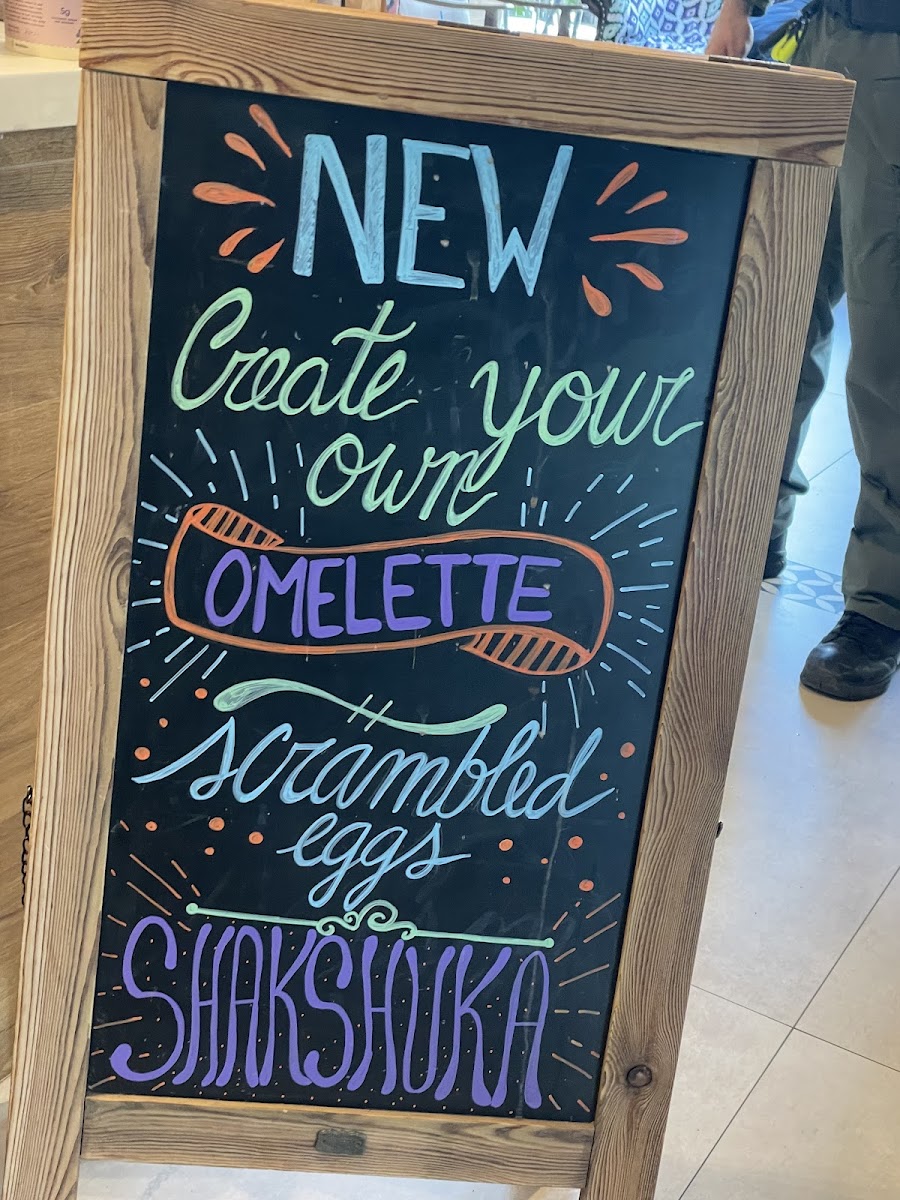 5g
NEW
Create your
own
OMELETTE
scrambled
eggs
SHAKSHUKA